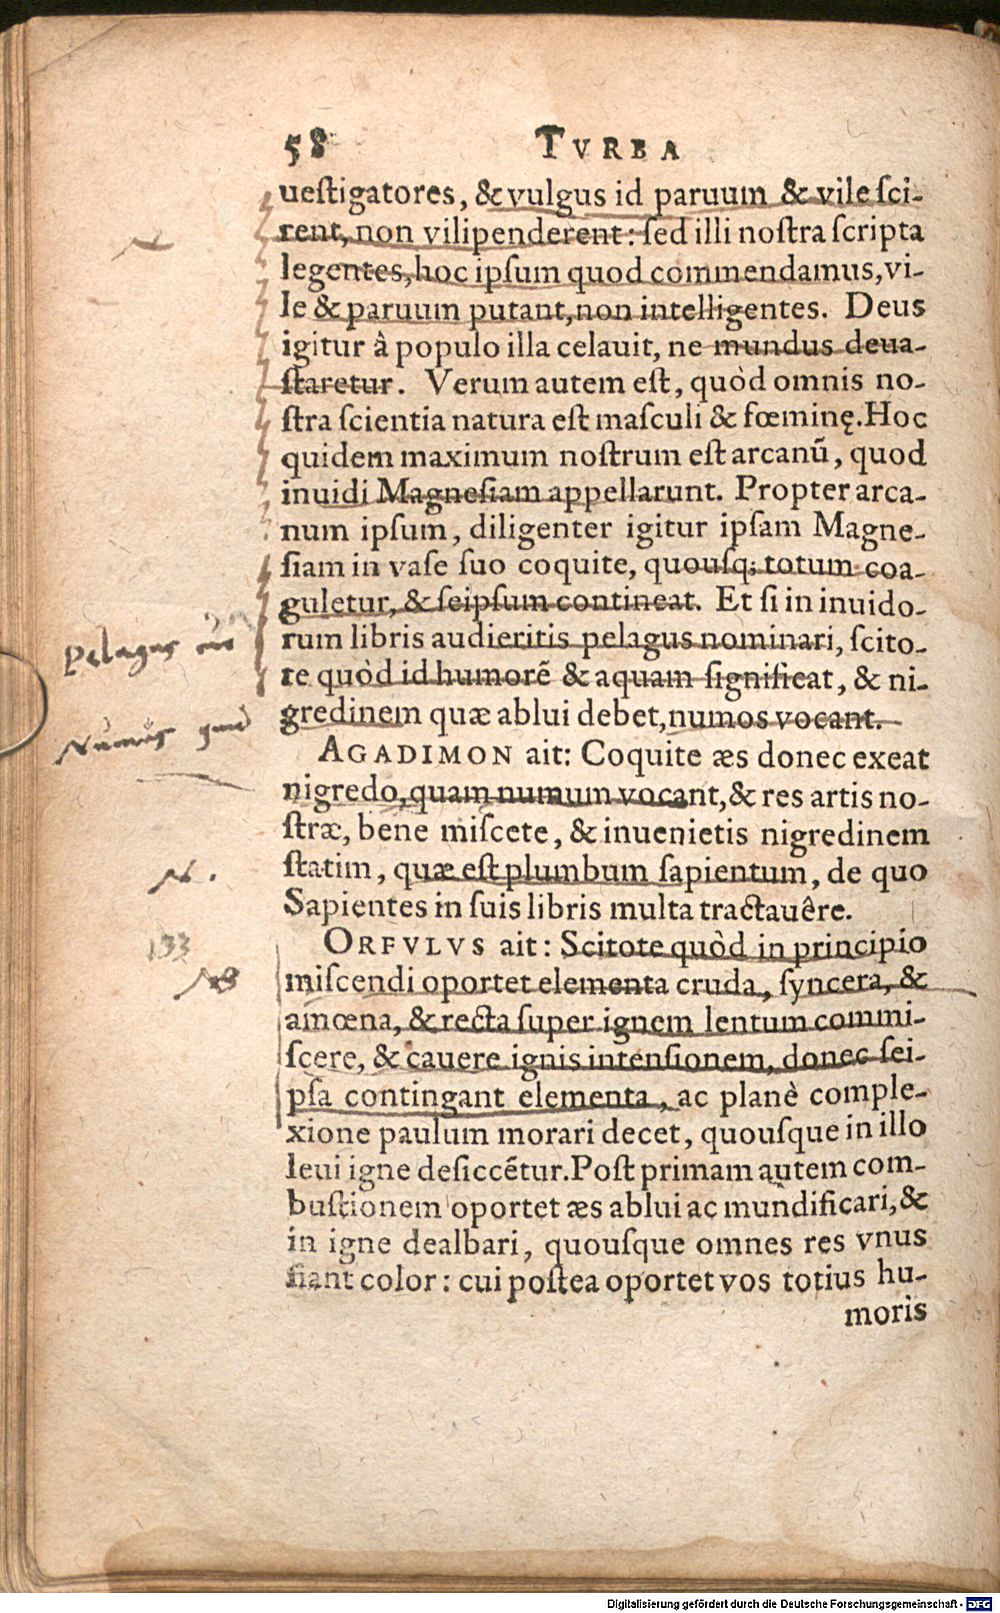 58 TVRBA
uestigatores, & vulgus id paruum & vile sci-
rent, non vilipenderent: sed illi nostra scripta
legentes, hoc ipsum quod commendamus, vi-
le & paruum putant, non intelligentes. Deus
igitur à populo illa celauit, ne mundus deua-
staretur. Verum autem est, quòd omnis no-
stra scientia natura est masculi & fœminę. Hoc
quidem maximum nostrum est arcanũ, quod
inuidi Magnesiam appellarunt. Propter arca-
num ipsum, diligenter igitur ipsam Magne-
siam in vase suo coquite, quousq; totum coa-
guletur, & seipsum contineat. Et si in inuido-
rum libris audieritis pelagus nominari, scito-
te quòd id humorẽ & aquam significat, & ni-
gredinem quæ ablui debet, numos vocant.
AGADIMON ait: Coquite æs donec exeat
nigredo, quam numum vocant, & res artis no-
stræ, bene miscete, & inuenietis nigredinem
statim, quæ est plumbum sapientum, de quo
Sapientes in suis libris multa tractauêre.
ORFVLVS ait: Scitote quòd in principio
miscendi oportet elementa cruda, syncera, &
amœna, & recta super ignem lentum commi-
scere, & cauere ignis intensionem, donec sei-
psa contingant elementa, ac planè comple-
xione paulum morari decet, quousque in illo
leui igne desiccẽtur. Post primam autem com-
bustionem oportet æs ablui ac mundificari, &
in igne dealbari, quousque omnes res vnus
fiant color: cui postea oportet vos totius hu-
moris
Pelagus
Numus quid
133
NB
Digitalisierung gefördert durch die Deutsche Forschungsgemeinschaft - DFG